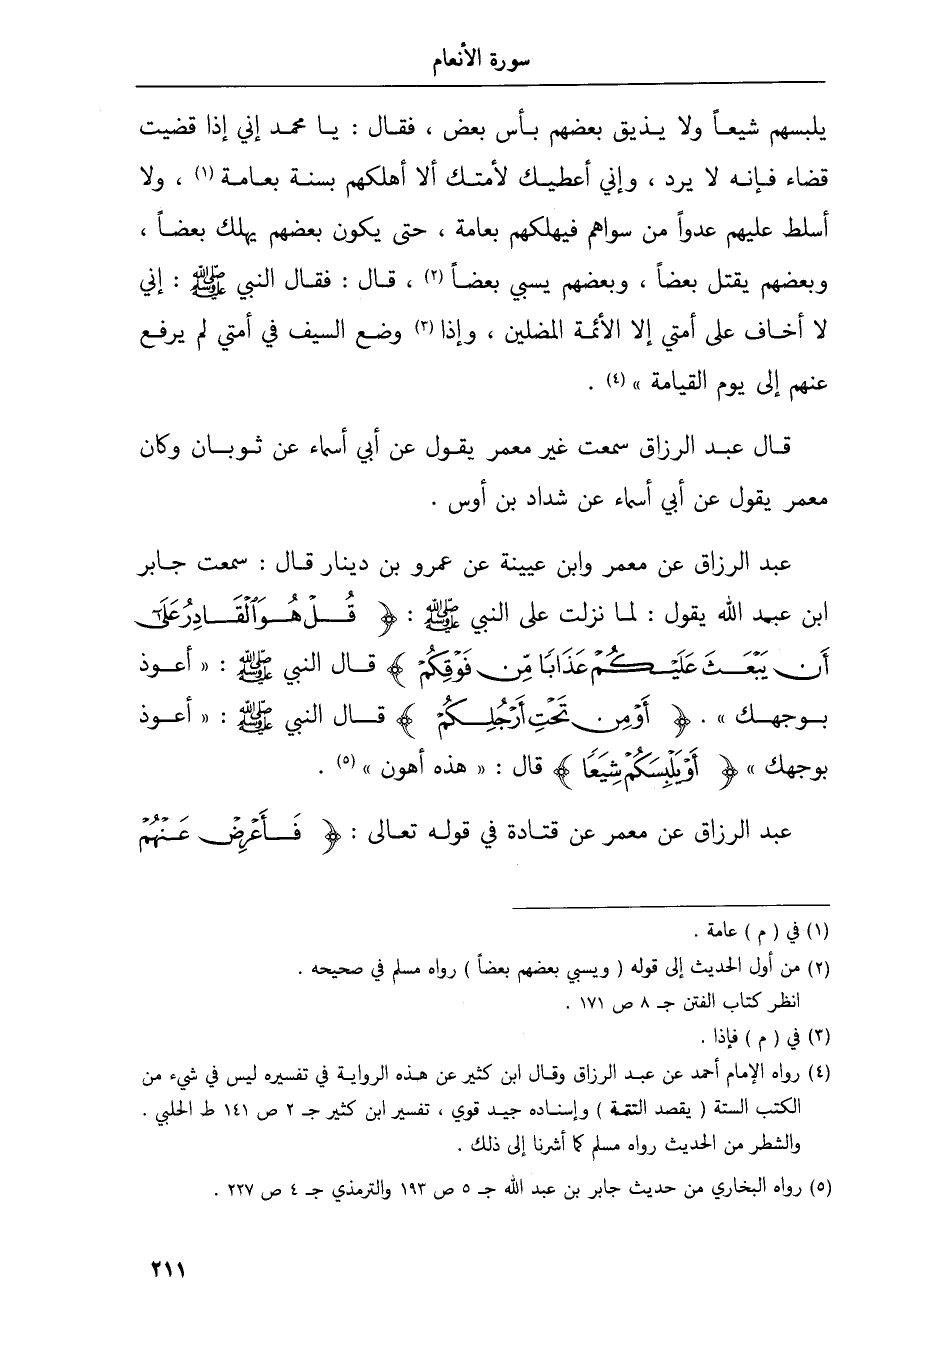 سورة الأنعام
يلبسهم شيعاً ولا يذيق بعضهم بأس بعض ، فقال : يا محمد إني إذا قضيت
قضاء فإنه لا يرد ، وإني أعطيك لأمتك ألا أهلكهم بسنة بعامة (١) ، ولا
أسلط عليهم عدواً من سواهم فيهلكهم بعامة ، حتى يكون بعضهم يهلك بعضاً ،
وبعضهم يقتل بعضاً ، وبعضهم يسبي بعضاً (٢) ، قال : فقال النبي ﷺ : إني
لا أخاف على أمتي إلا الأئمة المضلين ، وإذا (٣) وضع السيف في أمتي لم يرفع
عنهم إلى يوم القيامة » (٤) .
قال عبد الرزاق سمعت غير معمر يقول عن أبي أسماء عن ثوبان وكان
معمر يقول عن أبي أسماء عن شداد بن أوس .
عبد الرزاق عن معمر وابن عيينة عن عمرو بن دينار قال : سمعت جابر
ابن عبد الله يقول : لما نزلت على النبي ﷺ : ﴿ قُلْ هُوَ ٱلْقَادِرُ عَلَىٰٓ
أَن يَبْعَثَ عَلَيْكُمْ عَذَابًا مِّن فَوْقِكُمْ ﴾ قال النبي ﷺ : « أعوذ
بوجهك » . ﴿ أَوْ مِن تَحْتِ أَرْجُلِكُمْ ﴾ قال النبي ﷺ : « أعوذ
بوجهك » ﴿ أَوْ يَلْبِسَكُمْ شِيَعًا ﴾ قال : « هذه أهون » (٥) .
عبد الرزاق عن معمر عن قتادة في قوله تعالى : ﴿ فَأَعْرِضْ عَنْهُمْ
(١) في ( م ) عامة .
(٢) من أول الحديث إلى قوله ( ويسبي بعضهم بعضاً ) رواه مسلم في صحيحه .
انظر كتاب الفتن جـ ٨ ص ١٧١ .
(٣) في ( م ) فإذا .
(٤) رواه الإمام أحمد عن عبد الرزاق وقال ابن كثير عن هذه الرواية في تفسيره ليس في شيء من
الكتب الستة ( يقصد التتمة ) وإسناده جيد قوي ، تفسير ابن كثير جـ ٢ ص ١٤١ ط الحلبي .
والشطر من الحديث رواه مسلم كما أشرنا إلى ذلك .
(٥) رواه البخاري من حديث جابر بن عبد الله جـ ٥ ص ١٩٣ والترمذي جـ ٤ ص ٢٢٧ .
٢١١